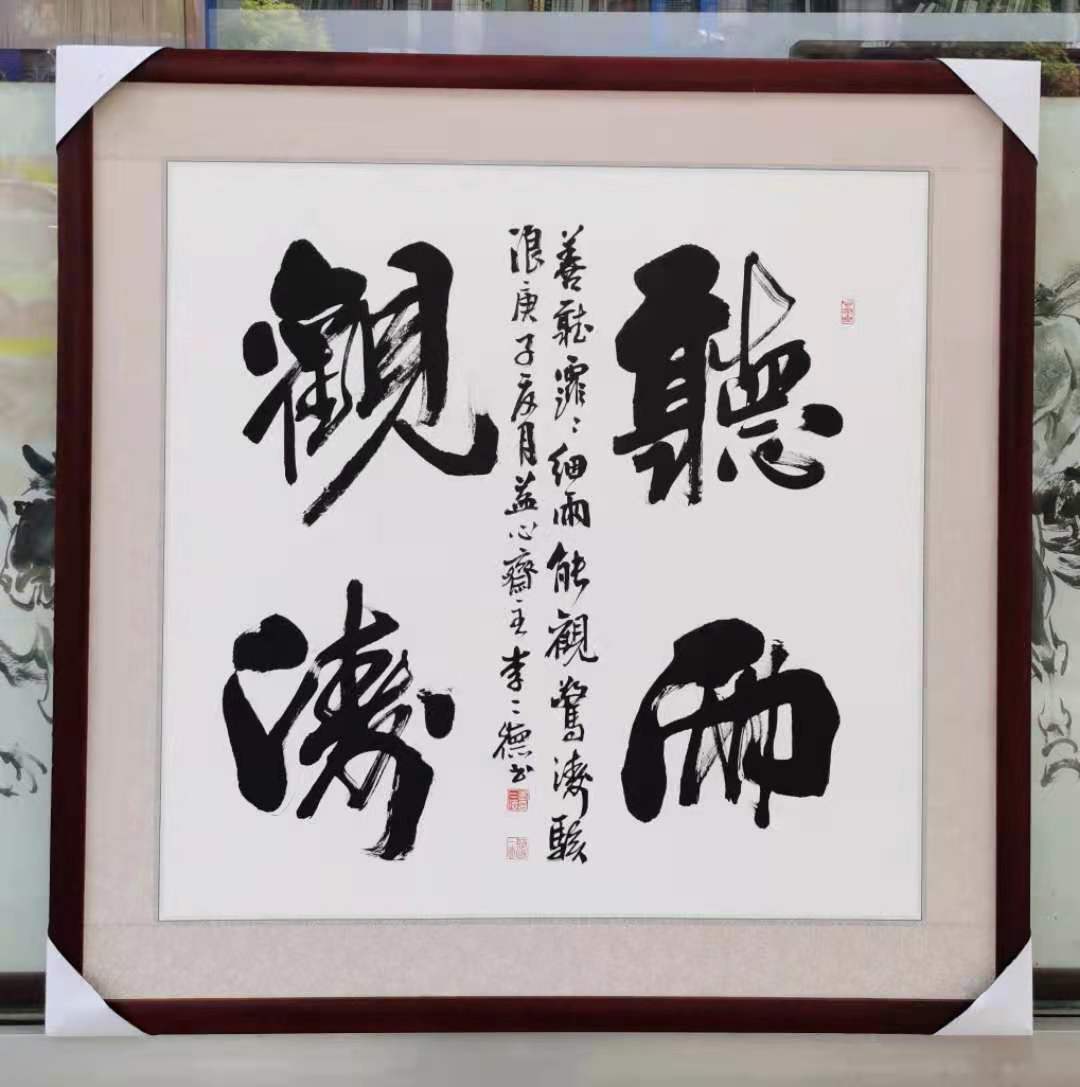 聽雨
觀濤
善聽霏霏細雨能觀驚濤駭
浪庚子夏月益心齋主李二德书